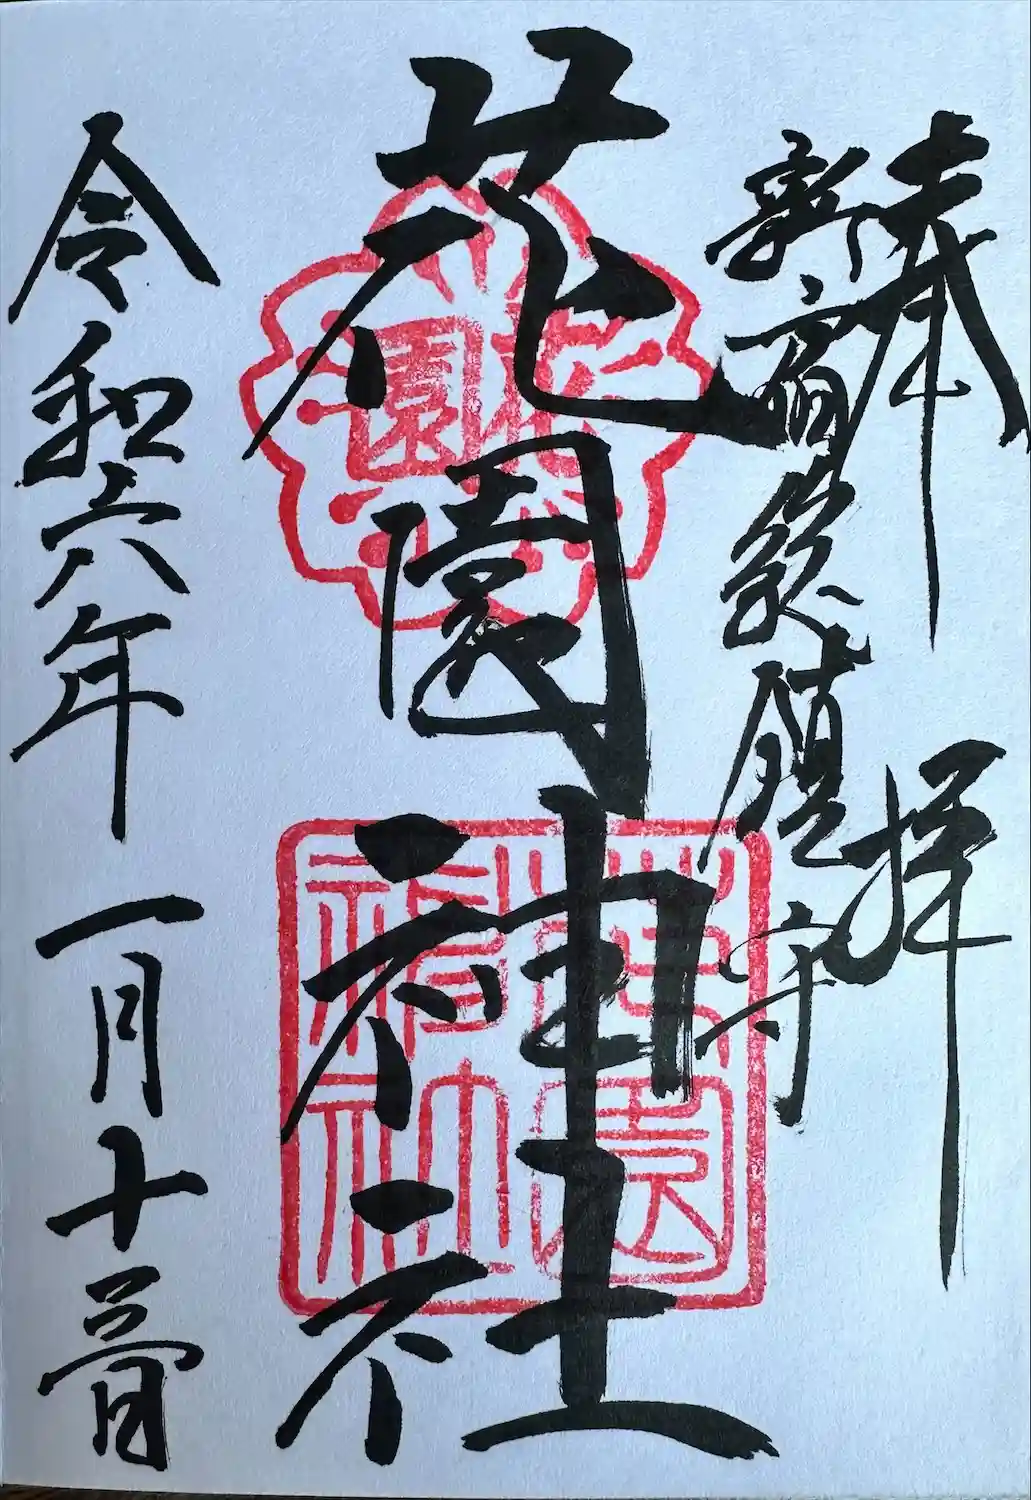 奉拝
新宿総鎮守
花園神社
令和六年一月十三日
花園
花園神社